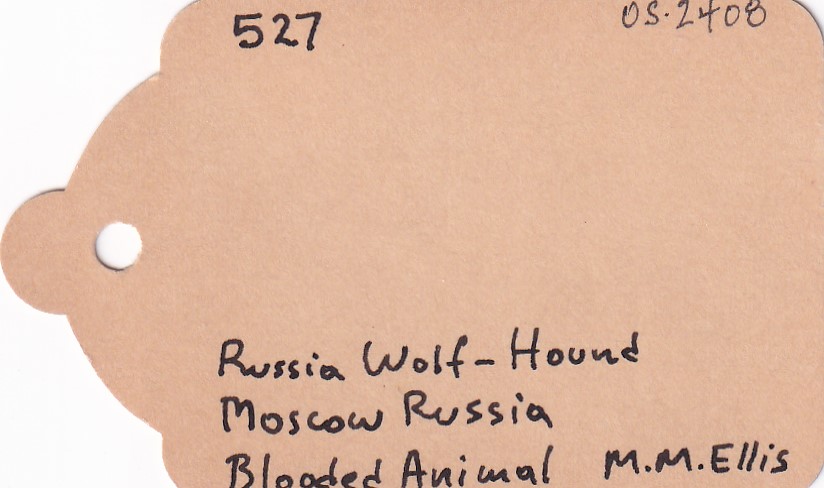 527 OS.2408
Russia Wolf-Hound
Moscow Russia
Blooded Animal M.M.Ellis